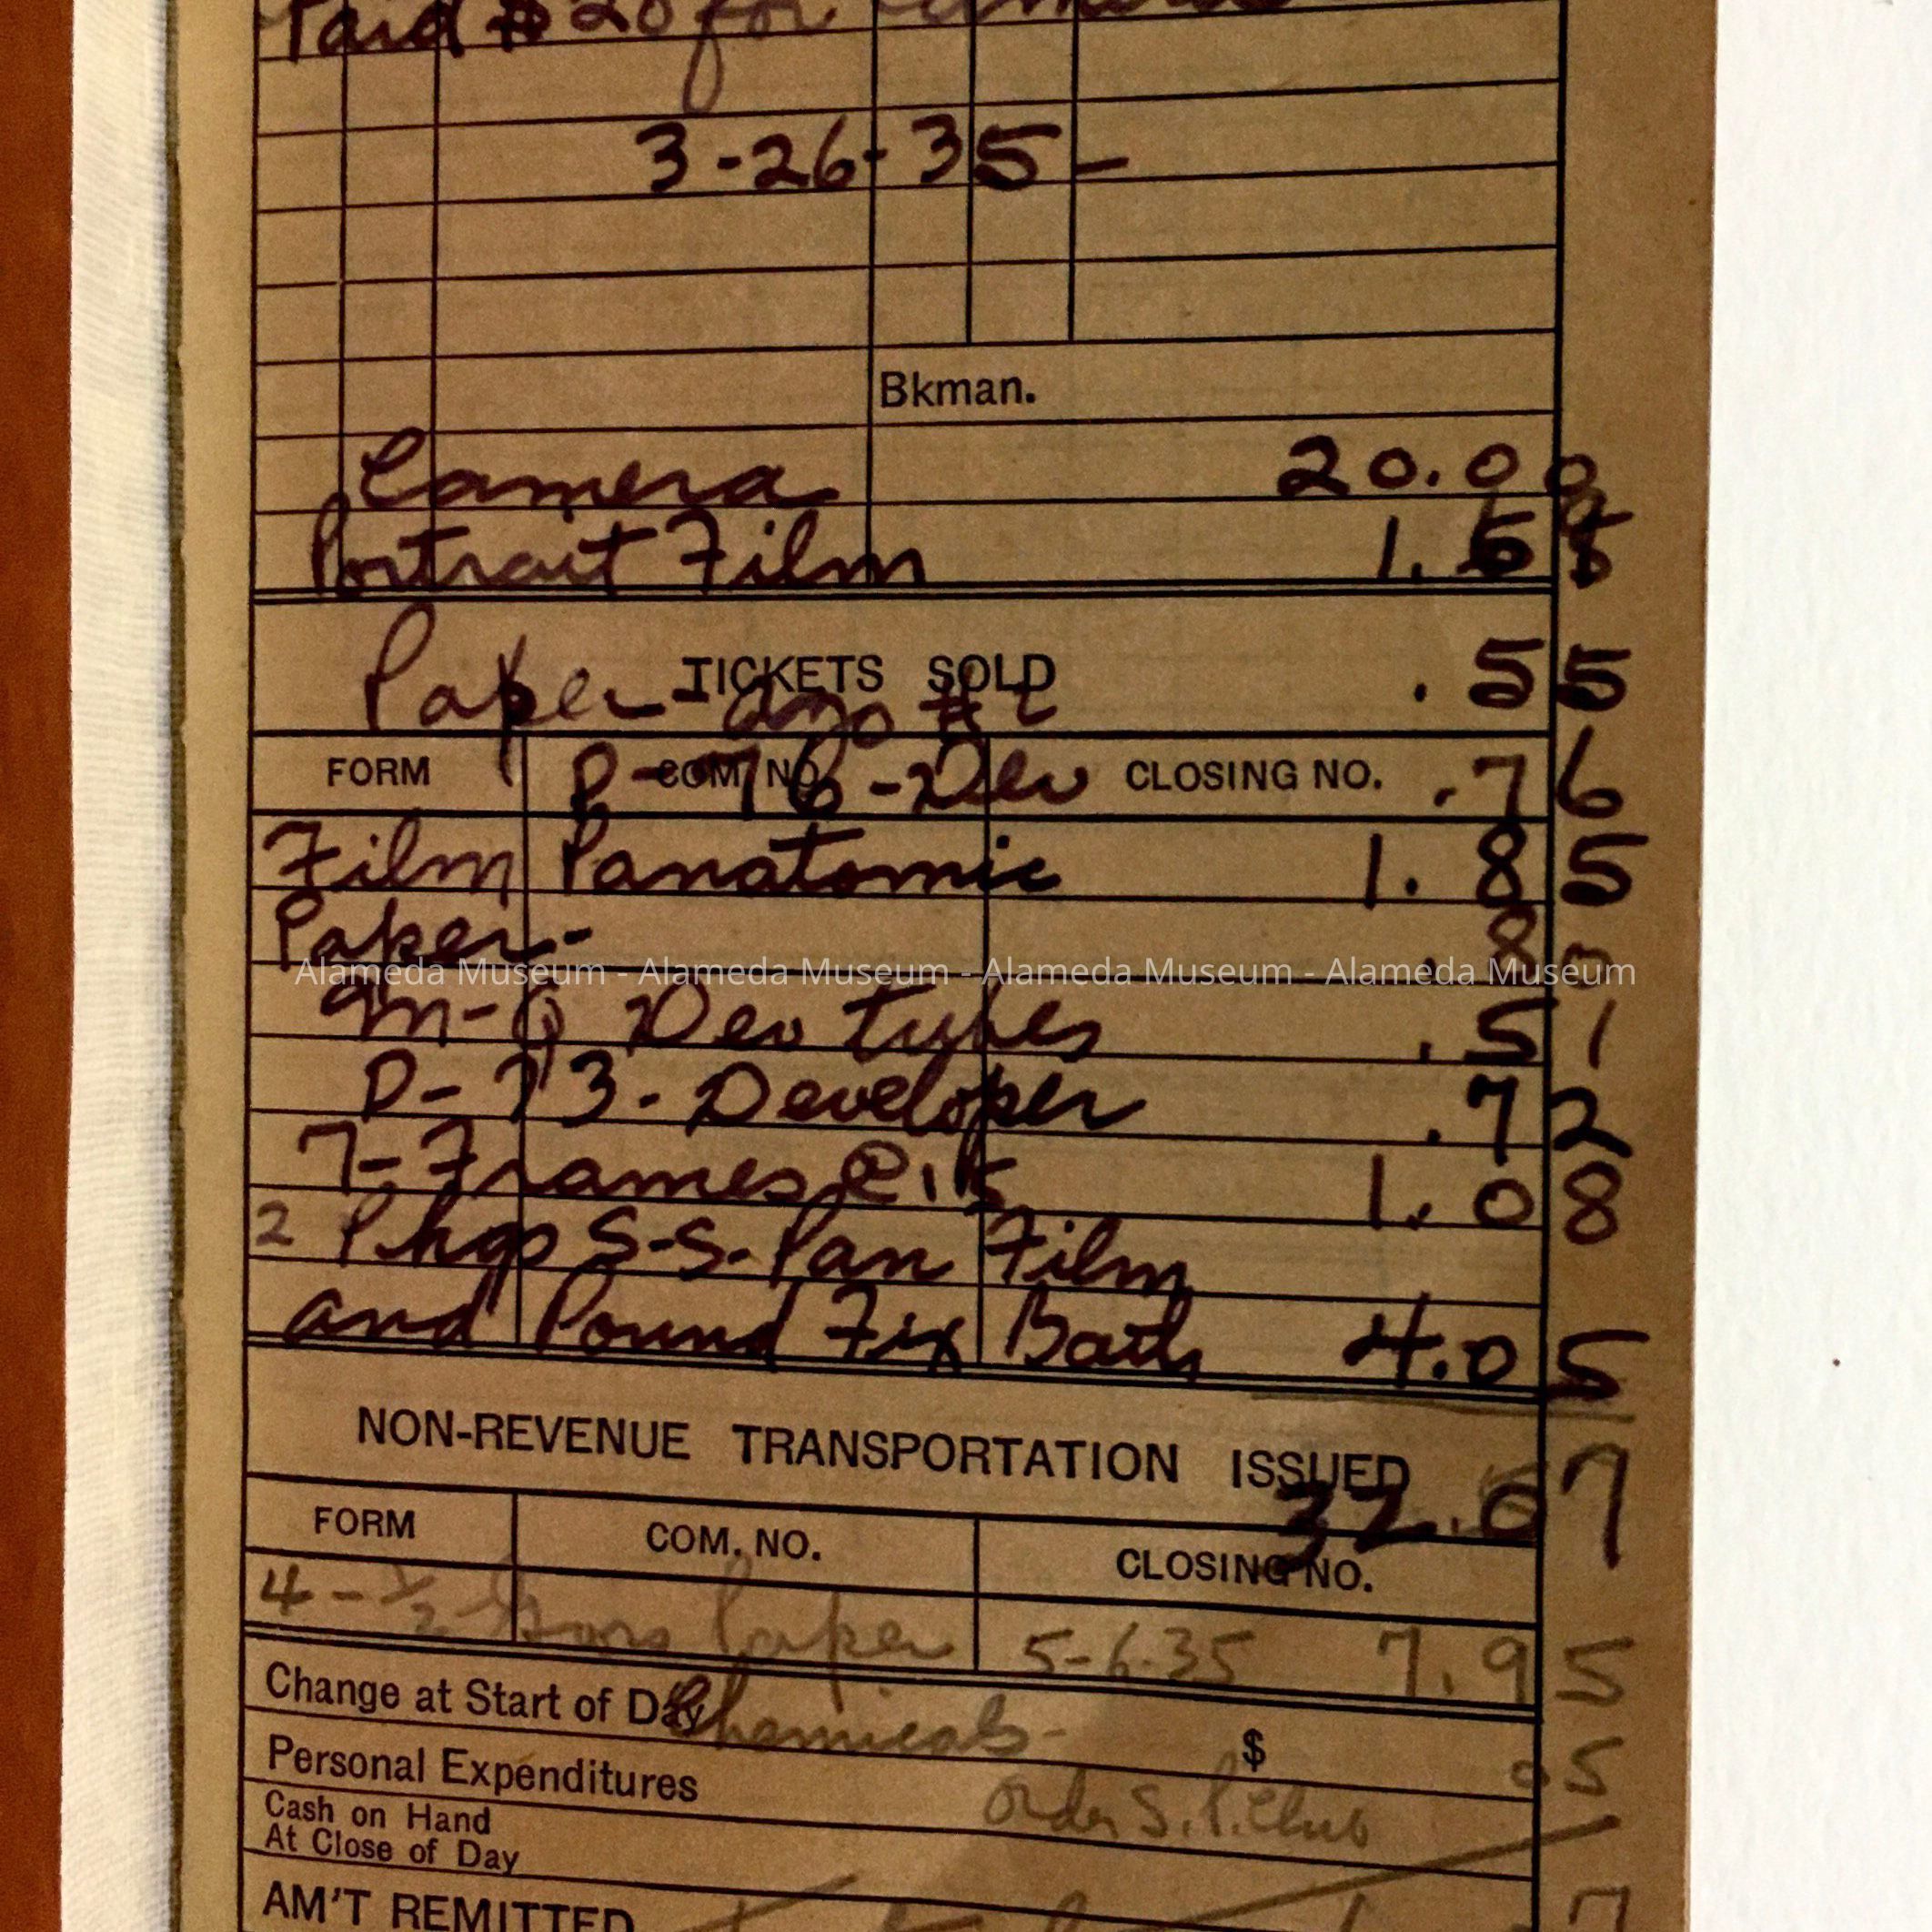 Paid $20 for Camera
3-26-35-
Bkman.
Camera 20.00
Portrait Film 1.65
TICKETS SOLD
Paper - Azo #2 .55
FORM COM. NO. CLOSING NO.
D-76-Dev .76
Film Panatomic 1.85
Paper- .80
Alameda Museum - Alameda Museum - Alameda Museum - Alameda Museum
M-Q Dev tubes .51
D-73-Developer .72
7-Frames @.15 1.08
2 Pkgs S-S-Pan Film
and Pound Fix Bath 4.05
NON-REVENUE TRANSPORTATION ISSUED
32.07
FORM COM. NO. CLOSING NO.
4-1/2 Gross Paper 5-6-35 7.95
Change at Start of Day
Chemicals- $ 05
Personal Expenditures
Order S.P. Club
Cash on Hand
At Close of Day
AM'T REMITTED